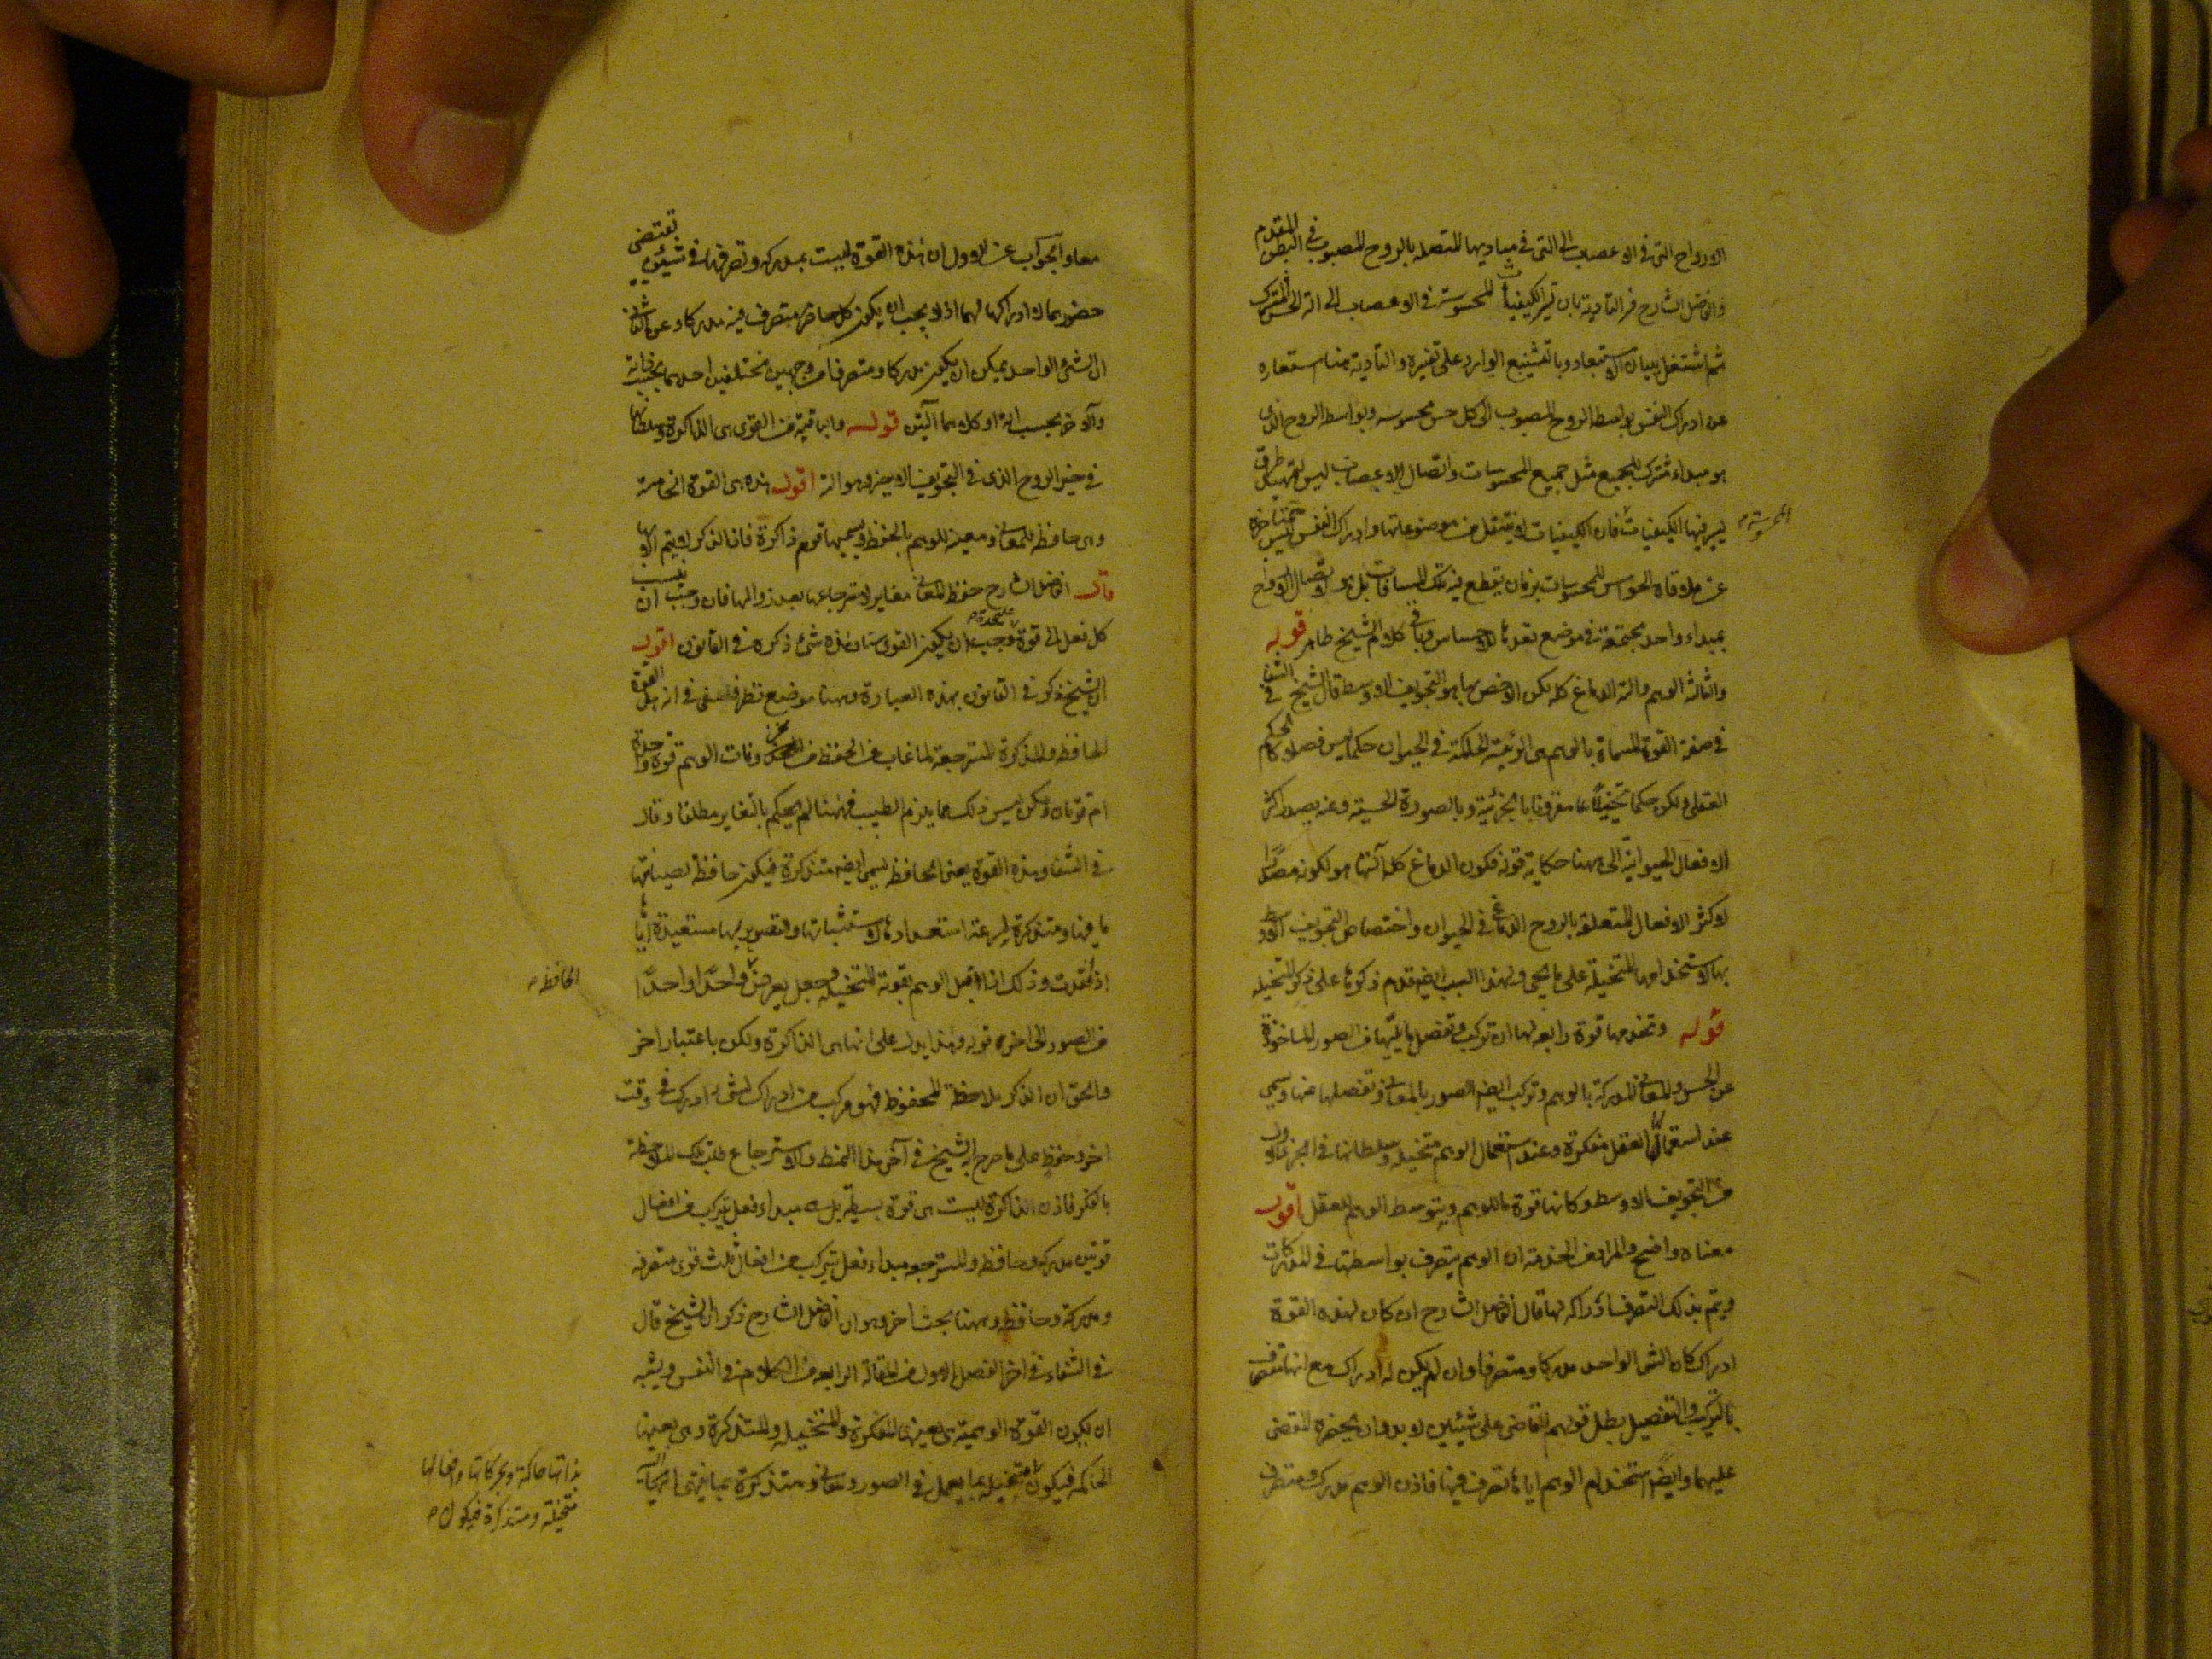 الارواح التى فى الاعصاب الى التى فى مباديها المتصلة بالروح المصبوب فى البطن المقدم
والفاضل الشارح فسر التأدية بان تسير الكيفيات المحسوسة فى الاعصاب الى آلة الحس المشترك
ثم اشتغل ببيان الاستبعاد وبالتشنيع الوارد على تفسيره والتأدية هنا استعاره
عن ادراك النفس بواسطة الروح المصبوب الى كل حس محسوسه وبواسطة الروح الذى
هو مبداء مشترك للجميع مثل جميع المحسوسات واتصال الاعصاب ليس لتمهيد طرق
يسير فيها الكيفيات فان الكيفيات لا ينتقل عن موضوعاتها وادراك النفس ليس بمتأخرة
المحسوسة
عن ملاقاة الحواس للمحسوسات بزمان يقطع فيه تلك المسافات بل هو لاتصال الارواح
بمبداء واحد مجتمعة فى موضع تعدها للاحساس وباقى كلام الشيخ ظاهر قوله
والثالثة الوهم وآلته الدماغ كله لكن الاخص بها هو التجويف الاوسط قال الشيخ فى الشفا
فى صفة القوة المسماة بالوهم هى الرئيسة الحاكمة فى الحيوان حكما ليس فصلا كالحكم
العقلى ولكن حكما تخييليا مقرونا بالجزئية وبالصورة الحسية وعنه يصدر اكثر
الافعال الحيوانية الى ههنا حكاية قوله فكون الدماغ كله آلتها هو لكونه مصدرا
لاكثر الافعال المتعلقة بالروح الدماغى فى الحيوان واختصاص التجويف الاوسط
بها لاستخدامها المتخيلة على ما يجئ ولهذا السبب ايضا قدم ذكرها على ذكر المتخيلة
قوله وتخدمها قوة رابعة لها ان تركب وتفصل ما يليها من الصور الماخوذة
عن الحس والمعانى المدركة بالوهم وتركب ايضا الصور بالمعانى وتفصلها عنها وتسمى
عند استعمال العقل مفكرة وعند استعمال الوهم متخيلة وسلطانها فى الجزء الاول
من التجويف الاوسط وكانها قوة ما للوهم وبتوسط الوهم للعقل اقول
معناه واضح والمراد من الخدمة ان الوهم يتصرف بواسطتها فى المدركات
ويتم بذلك التصرف ادراكه لها قال الفاضل الشارح ان كان لهذه القوة
ادراك كان الشئ الواحد مدركا ومتصرفا وان لم يكن له ادراك مع انها تتصرف
بالتركيب والتفصيل بطل قولهم القاضى على شيئين لا بد وان يحضره المقضى
عليهما وايضا استخدام الوهم اياها تصرف فيها فاذن الوهم مدرك ومتصرف
معا والجواب عن الاول ان هذه القوة ليست بمدركة وتصرفها فى شيئين تقتضى
حضورهما لا ادراكها لهما اذ لا يجب ان يكون كل حاضر متصرف فيه مدركا وعن الثانى
ان الشئ الواحد يمكن ان يكون مدركا ومتصرفا من وجهين مختلفين احدهما بحسب ذاته
والآخر بحسب آلة او كلاهما آليتين قوله والباقية من القوى هى الذاكرة وسلطانها
فى حيز الروح الذى فى التجويف الاخير وهو آلة اقول هذه هى القوة الخامسة
وهى حافظة للمعانى ومعينة للوهم بالحفظ ويسميها قوم ذاكرة فان الذكر لا يتم الا بها
قال الفاضل الشارح حفظ المعانى مغاير لاسترجاعها بعد زوالها فان وجب ان ينسب
كل فعل الى قوة على حدة وجب ان يكون القوى ستا وهذا شئ ذكره فى القانون اقول
الشيخ ذكر فى القانون بهذه العبارة وههنا موضع نظر فلسفى فى انه هل القوة
الحافظة والمذكرة المسترجعة لما غاب عن الحفظ من مخزونات الوهم قوة واحدة
ام قوتان ولكن ليس ذلك مما يلزم الطبيب فههنا لم يحكم بالتغاير مطلقا وقال
فى الشفا وهذه القوة يعنى الحافظة تسمى ايضا متذكرة فيكون حافظة لصيانتها
ما فيها ومتذكرة لسرعة استعدادها لاستثباتها والتصوير بها مستعيدة اياها
اذا فقدت وذلك اذا اقبل الوهم بقوته المتخيلة فجعل يعرض واحدا واحدا
الحافظة
من الصور الى اخر قوله وهذا يدل على انها هى الذاكرة ولكن باعتبار اخر
والحق ان الذكر ملاحظة المحفوظ فهو مركب من ادراك لشئ ادرك فى وقت
اخر وحفظ على ما صرح به الشيخ فى آخر هذا النمط والاسترجاع طلب تلك الملاحظة
بالفكر فاذن الذاكرة ليست هى قوة بسيطة بل مبداء فعل يتركب من افعال
قوتين مدركة وحافظة والمسترجعة مبداء فعل يتركب من افعال ثلث قوى متصرفة
ومدركة وحافظة وههنا بحث اخر وهو ان الفاضل الشارح ذكر ان الشيخ قال
فى الشفاء فى اخر الفصل الاول من المقالة الرابعة من الكلام فى النفس ويشبه
ان يكون القوة الوهمية هى بعينها المفكرة والمتخيلة والمتذكرة وهى بعينها
الحاكمة فيكون متخيلة بما يعمل فى الصور والمعانى ومتذكرة بما ينتهى اليه
بذاتها حاكمة وبحركاتها وافعالها
متخيلة ومتذكرة فيكون